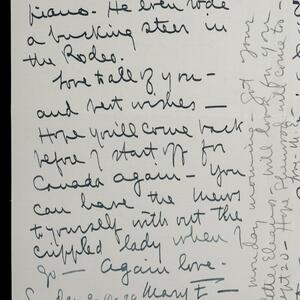 piano. He even rode
a bucking steer in
the Rodeo.
Love to all of you -
and best wishes -
Hope you'll come back
before I start off for
Canada again - You
can have the Mews
to yourself with out the
crippled lady when I
go - Again love.
Mary E -
Monday morning - Got your
letter Eleanor & will look for you